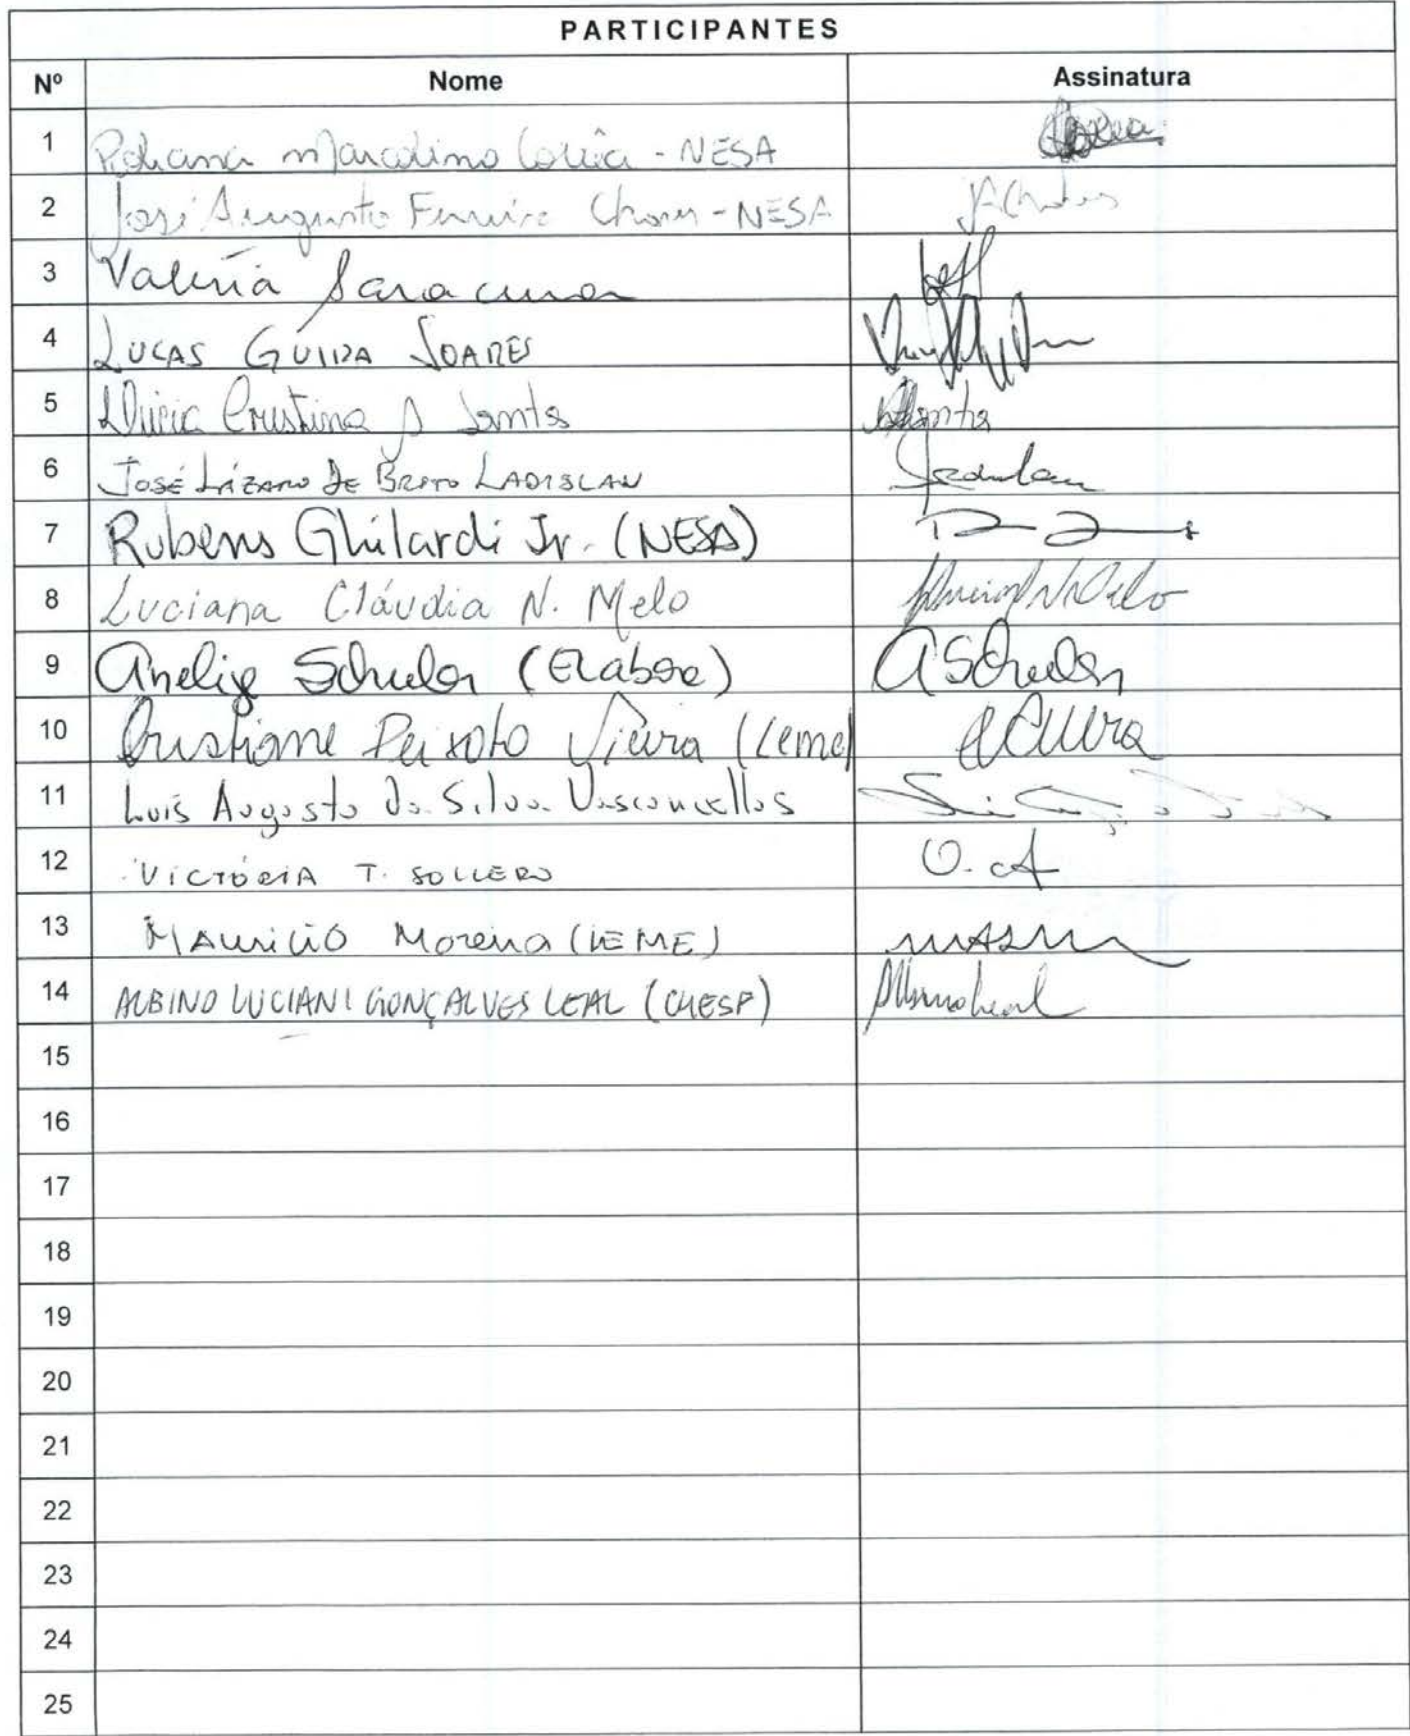 PARTICIPANTES
Nº Nome Assinatura
1 Marcolino Corrêa - NESA
2 José Augusto - NESA
3 Valéria Saracura
4 LUCAS GUIDA SOARES
5 Cristina Santos
6 JOSÉ LÁZARO DE BRITO LADISLAU
7 Rubens Ghilardi Jr. (NESA)
8 Luciana Cláudia N. Melo
9 Anelize Schuler (Elabore) ASchuler
10 Cristiane Peixoto Vieira (Leme)
11 Luís Augusto da Silva Vasconcellos
12 VICTÓRIA T. SOLLERO
13 MAURICIO Moreira (LEME)
14 ALBINO LUCIANI GONÇALVES LEAL (CHESF)
15
16
17
18
19
20
21
22
23
24
25